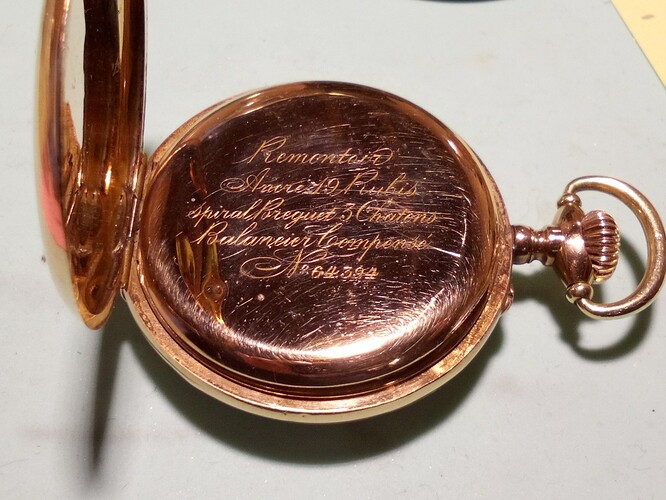 Remontoir
Ancre 19 Rubis
Spiral Breguet 3 Chatons
Balancier Compense
No 64394